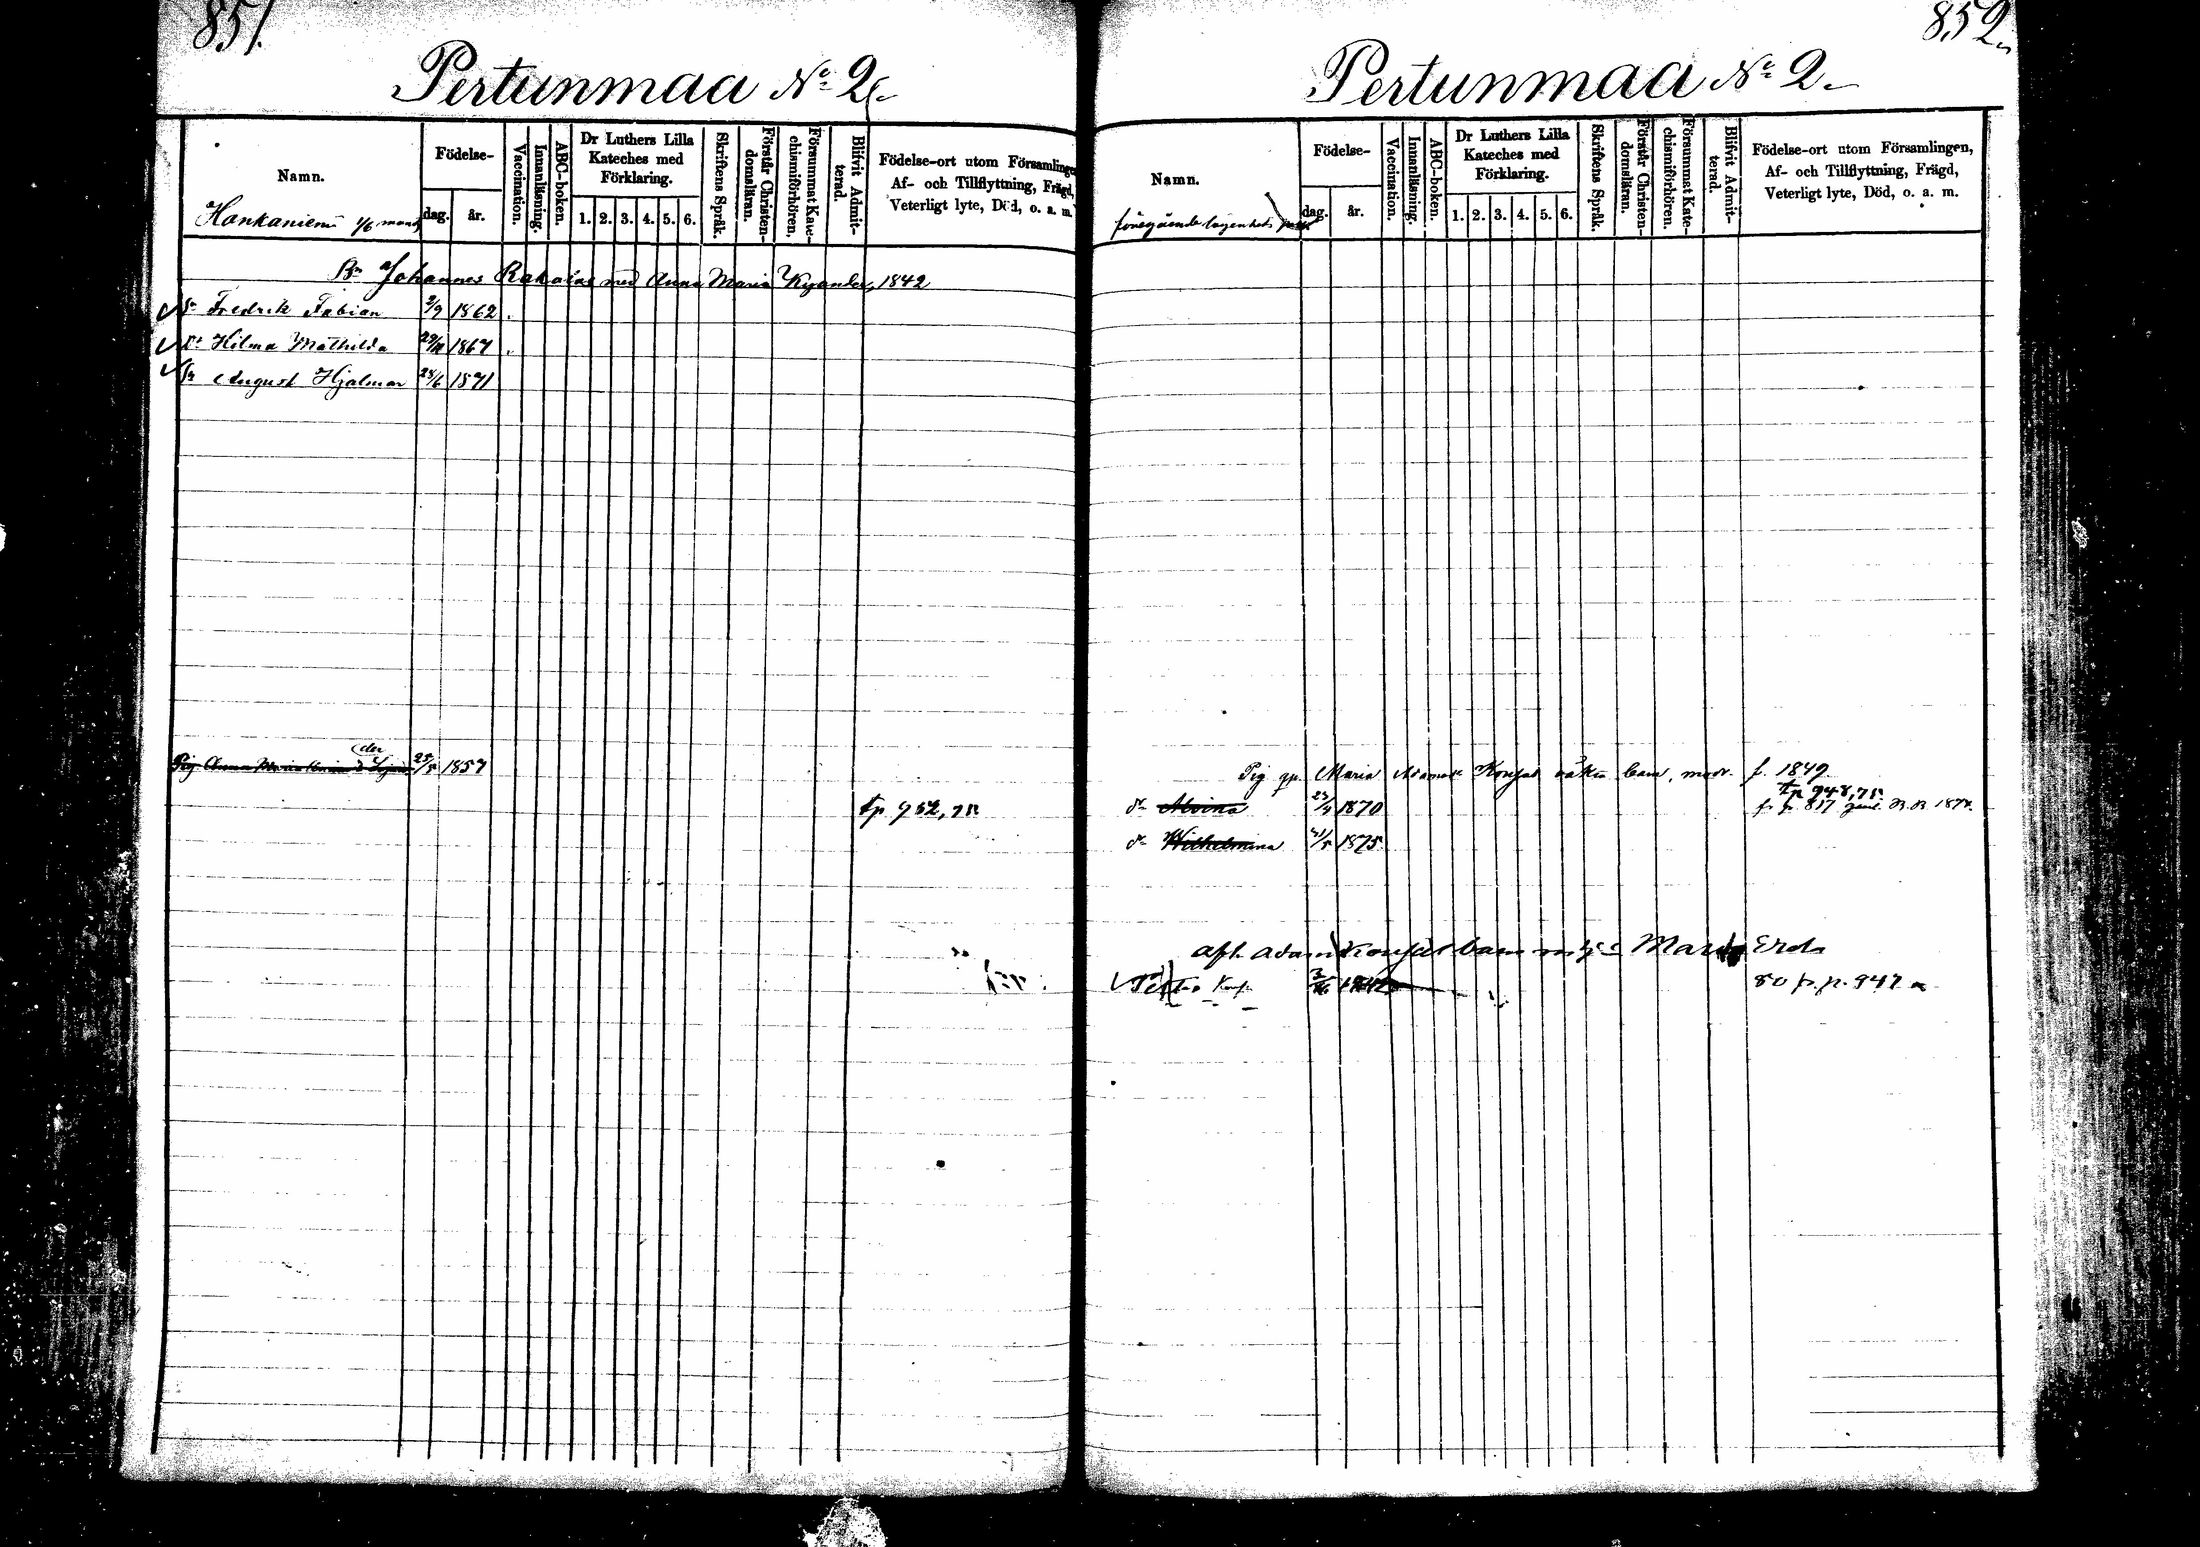 851.
Pertunmaa No 2.
Namn.
Födelse-
dag.
år.
Vaccination.
Innanläsning.
ABC-boken.
Dr Luthers Lilla
Kateches med
Förklaring.
1. 2. 3. 4. 5. 6.
Skriftens Språk.
Förstår Christen-
domsläran.
Försummat Kate-
chismiförhören.
Blifvit Admit-
terad.
Födelse-ort utom Församlingen
Af- och Tillflyttning, Frägd,
Veterligt lyte, Död, o. a. m.
Hankaniemi 1/6 mant
Bn Johannes med Anna Maria Kyander, 1842
Sn Fredrik Fabian 2/9 1862
Dr Hilma Mathilda 1867
Sn August Hjalmar 28/6 1871
Pig Anna 1857
der
tp 952, 75
852
Pertunmaa No 2
Namn.
Födelse-
dag.
år.
Vaccination.
Innanläsning.
ABC-boken.
Dr Luthers Lilla
Kateches med
Förklaring.
1. 2. 3. 4. 5. 6.
Skriftens Språk.
Förstår Christen-
domsläran.
Försummat Kate-
chismiförhören.
Blifvit Admit-
terad.
Födelse-ort utom Församlingen,
Af- och Tillflyttning, Frägd,
Veterligt lyte, Död, o. a. m.
föregående lägenhets
Pig Maria Konsat oäkta barn, modr. f. 1849
tp 948, 75
dr Alvina 23/4 1870 fr p. 817 1874.
dr Wilhelmina 1875
afl. Adam barn Maria
80 fr p. 947